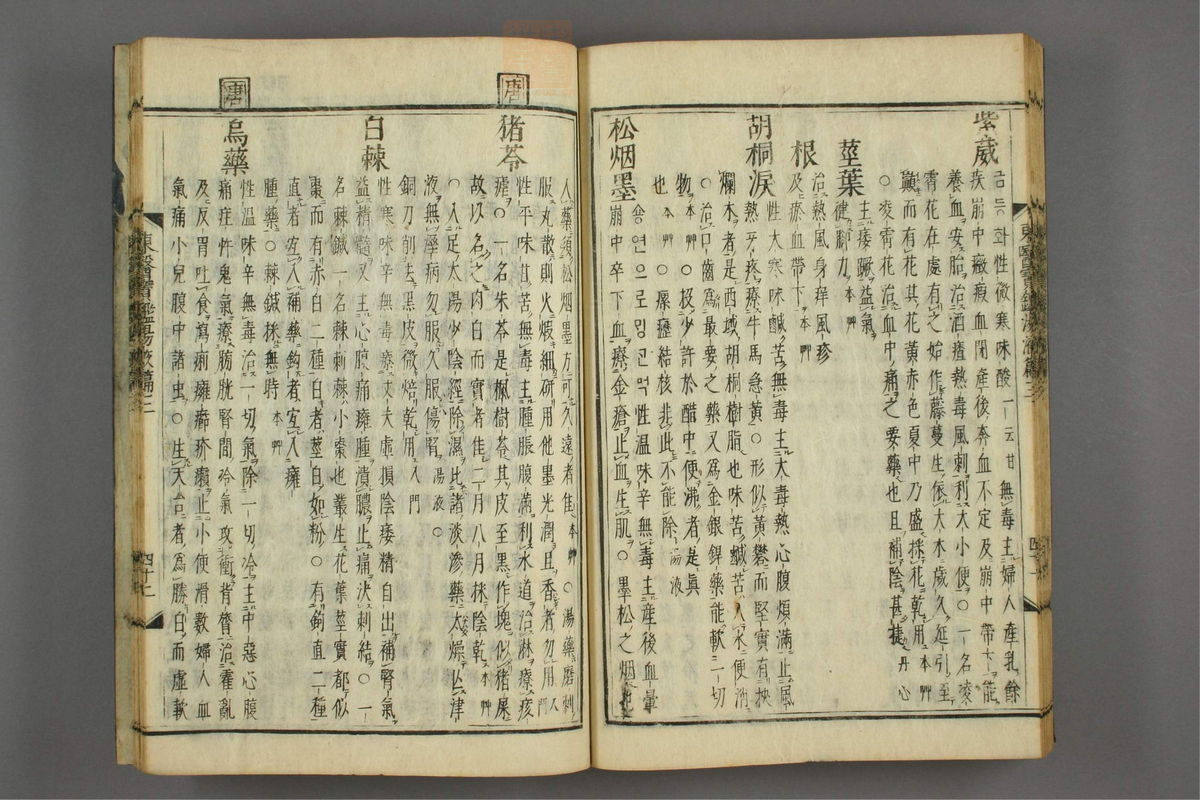 紫葳
금등화性微寒味酸一云甘無毒主婦人産乳餘
疾崩中癥瘕血閉産後奔血不定及崩中帶下能
養血安胎治酒齄熱毒風刺利大小便○一名凌
霄花在處有之始作藤蔓生依大木歲久延引至
巓而有花其花黃赤色夏中乃盛採花乾用本艸
○凌霄花治血中痛之要藥也且補陰甚捷丹心
莖葉 主痿蹶益氣
健脚力本艸
根 治熱風身痒風疹
及瘀血帶下本艸
胡桐淚
性大寒味鹹苦無毒主大毒熱心腹煩滿止風
熱牙疼療牛馬急黃○形似黃礬而堅實有挾
爛木者是西域胡桐樹脂也味苦鹹苦入水便消
○治口齒爲最要之藥又爲金銀銲藥能軟一切
物本艸○投少許於醋中便沸者是眞
也本艸○瘰癧結核非此不能除湯液
松烟墨
숑연으로밍근먹性溫味辛無毒主産後血暈
崩中卒下血療金瘡止血生肌○墨松之烟也
東醫寶鑑湯液篇三
入藥須松烟墨方可久遠者佳本艸○湯藥磨刺
服丸散則火煆細硏用他墨光潤且香者勿用入門
唐
猪苓
性平味甘苦無毒主腫脹腹滿利水道治淋療痎
瘧○一名朱苓是楓樹苓其皮至黑作塊似猪屎
故以名之肉白而實者佳二月八月採陰乾本艸
○入足太陽少陰經除濕比諸淡滲藥太燥亡津
液無濕病勿服久服傷腎湯液○
銅刀削去黑皮微焙乾用入門
白棘
性寒味辛無毒療丈夫虛損陰痿精自出補腎氣
益精髓又主心腹痛癰腫潰膿止痛決刺結○一
名棘鍼一名棘刺棘小棗也叢生花葉莖實都似
棗而有赤白二種白者莖白如粉○有鉤直二種
直者宜入補藥鉤者宜入癰
腫藥○棘鍼採無時本艸
唐
烏藥
性溫味辛無毒治一切氣除一切冷主中惡心腹
痛疰忤鬼氣療膀胱腎間冷氣攻衝背膂治霍亂
及反胃吐食瀉痢癰癤疥癩止小便滑數婦人血
氣痛小兒腹中諸虫○生天台者爲勝白而虛軟
東醫寶鑑湯液篇三 四十二